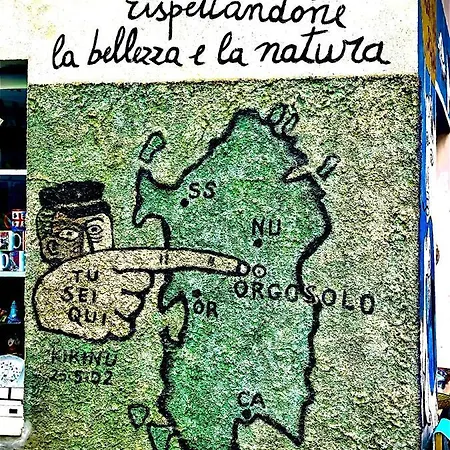 rispettandone
la bellezza e la natura
SS
NU
TU
SEI
QUI
ORGOSOLO
OR
KIKINU
CA